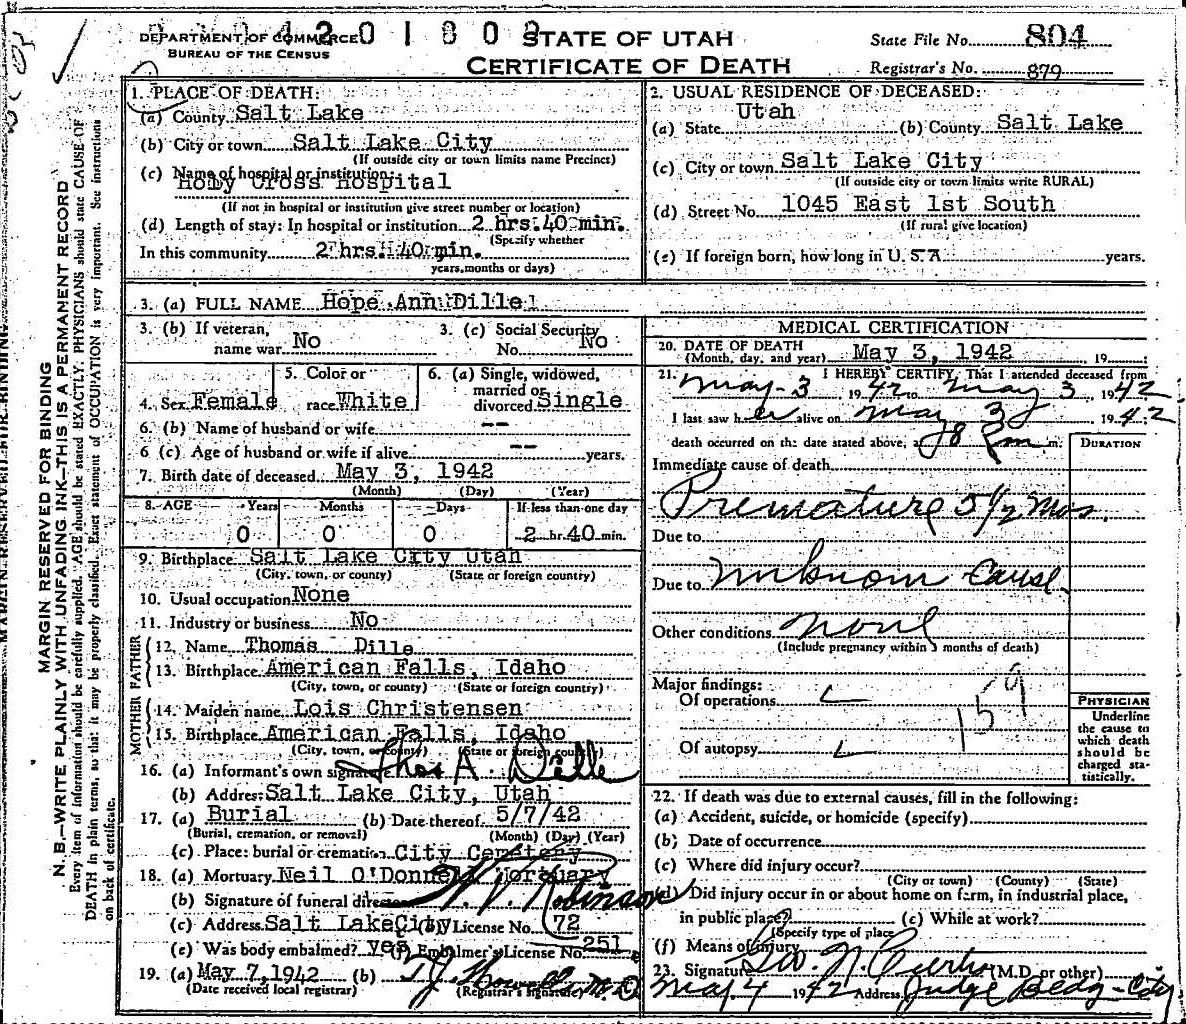 DEPARTMENT OF COMMERCE
BUREAU OF THE CENSUS
4201808
STATE OF UTAH
CERTIFICATE OF DEATH
State File No. 804
Registrar's No. 879
MARGIN RESERVED FOR BINDING
N. B.—WRITE PLAINLY WITH UNFADING INK—THIS IS A PERMANENT RECORD
Every item of information should be carefully supplied. AGE should be stated EXACTLY. PHYSICIANS should state CAUSE OF
DEATH in plain terms, so that it may be properly classified. Exact statement of OCCUPATION is very important. See instructions
on back of certificate.
1. PLACE OF DEATH:
(a) County Salt Lake
(b) City or town Salt Lake City
(If outside city or town limits name Precinct)
(c) Name of hospital or institution:
Holy Cross Hospital
(If not in hospital or institution give street number or location)
(d) Length of stay: In hospital or institution 2 hrs. 40 min.
(Specify whether
In this community 2 hrs. 40 min.
years, months or days)
2. USUAL RESIDENCE OF DECEASED:
(a) State Utah (b) County Salt Lake
(c) City or town Salt Lake City
(If outside city or town limits write RURAL)
(d) Street No. 1045 East 1st South
(If rural give location)
(e) If foreign born, how long in U. S. A. years.
3. (a) FULL NAME Hope Ann Dille
3. (b) If veteran, name war No
3. (c) Social Security No. No
4. Sex Female
5. Color or race White
6. (a) Single, widowed, married or divorced Single
6. (b) Name of husband or wife --
6 (c) Age of husband or wife if alive -- years.
7. Birth date of deceased May 3, 1942
(Month) (Day) (Year)
8. AGE Years Months Days If less than one day
0 0 0 2 hr. 40 min.
9. Birthplace Salt Lake City Utah
(City, town, or county) (State or foreign country)
10. Usual occupation None
11. Industry or business No
FATHER
12. Name Thomas Dille
13. Birthplace American Falls, Idaho
(City, town, or county) (State or foreign country)
MOTHER
14. Maiden name Lois Christensen
15. Birthplace American Falls, Idaho
(City, town, or county) (State or foreign country)
16. (a) Informant's own signature Thos A. Dille
(b) Address Salt Lake City, Utah
17. (a) Burial (b) Date thereof 5/7/42
(Burial, cremation, or removal) (Month) (Day) (Year)
(c) Place: burial or cremation City Cemetery
18. (a) Mortuary Neil O'Donnell Mortuary
(b) Signature of funeral director W. V. Robinson
(c) Address Salt Lake City (d) License No. 72
(e) Was body embalmed? yes (f) Embalmer's License No. 251
19. (a) May 7, 1942 (b) T. J. Howells M.D
(Date received local registrar) (Registrar's signature)
MEDICAL CERTIFICATION
20. DATE OF DEATH
(Month, day, and year) May 3, 1942, 19
21. I HEREBY CERTIFY, That I attended deceased from
May-3 1942 to May 3, 1942
I last saw her alive on May 3 1942;
death occurred on the date stated above, at 8 Pm m.
DURATION
Immediate cause of death
Premature 5 1/2 Mos.
Due to
Due to Unknown Cause
Other conditions None
(Include pregnancy within 3 months of death)
Major findings:
Of operations
159
Of autopsy
PHYSICIAN
Underline
the cause to
which death
should be
charged sta-
tistically.
22. If death was due to external causes, fill in the following:
(a) Accident, suicide, or homicide (specify)
(b) Date of occurrence
(c) Where did injury occur?
(City or town) (County) (State)
(d) Did injury occur in or about home on farm, in industrial place,
in public place? (e) While at work?
(Specify type of place
(f) Means of injury
23. Signature Geo. N. Curtis (M.D. or other)
May. 4 1942 Address Judge Bldg-City